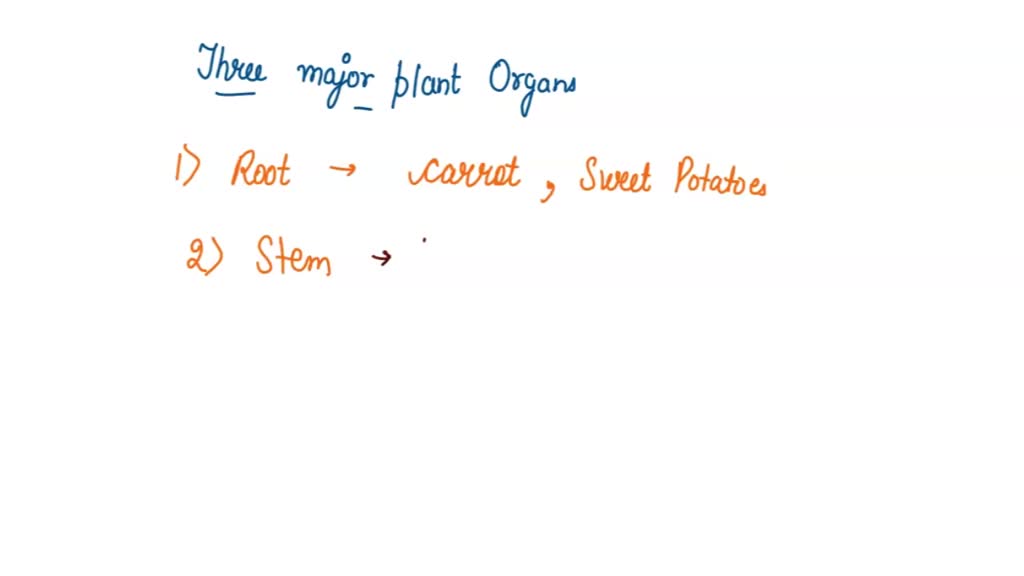 Three major plant Organs
1) Root → carrot, Sweet Potatoes
2) Stem →